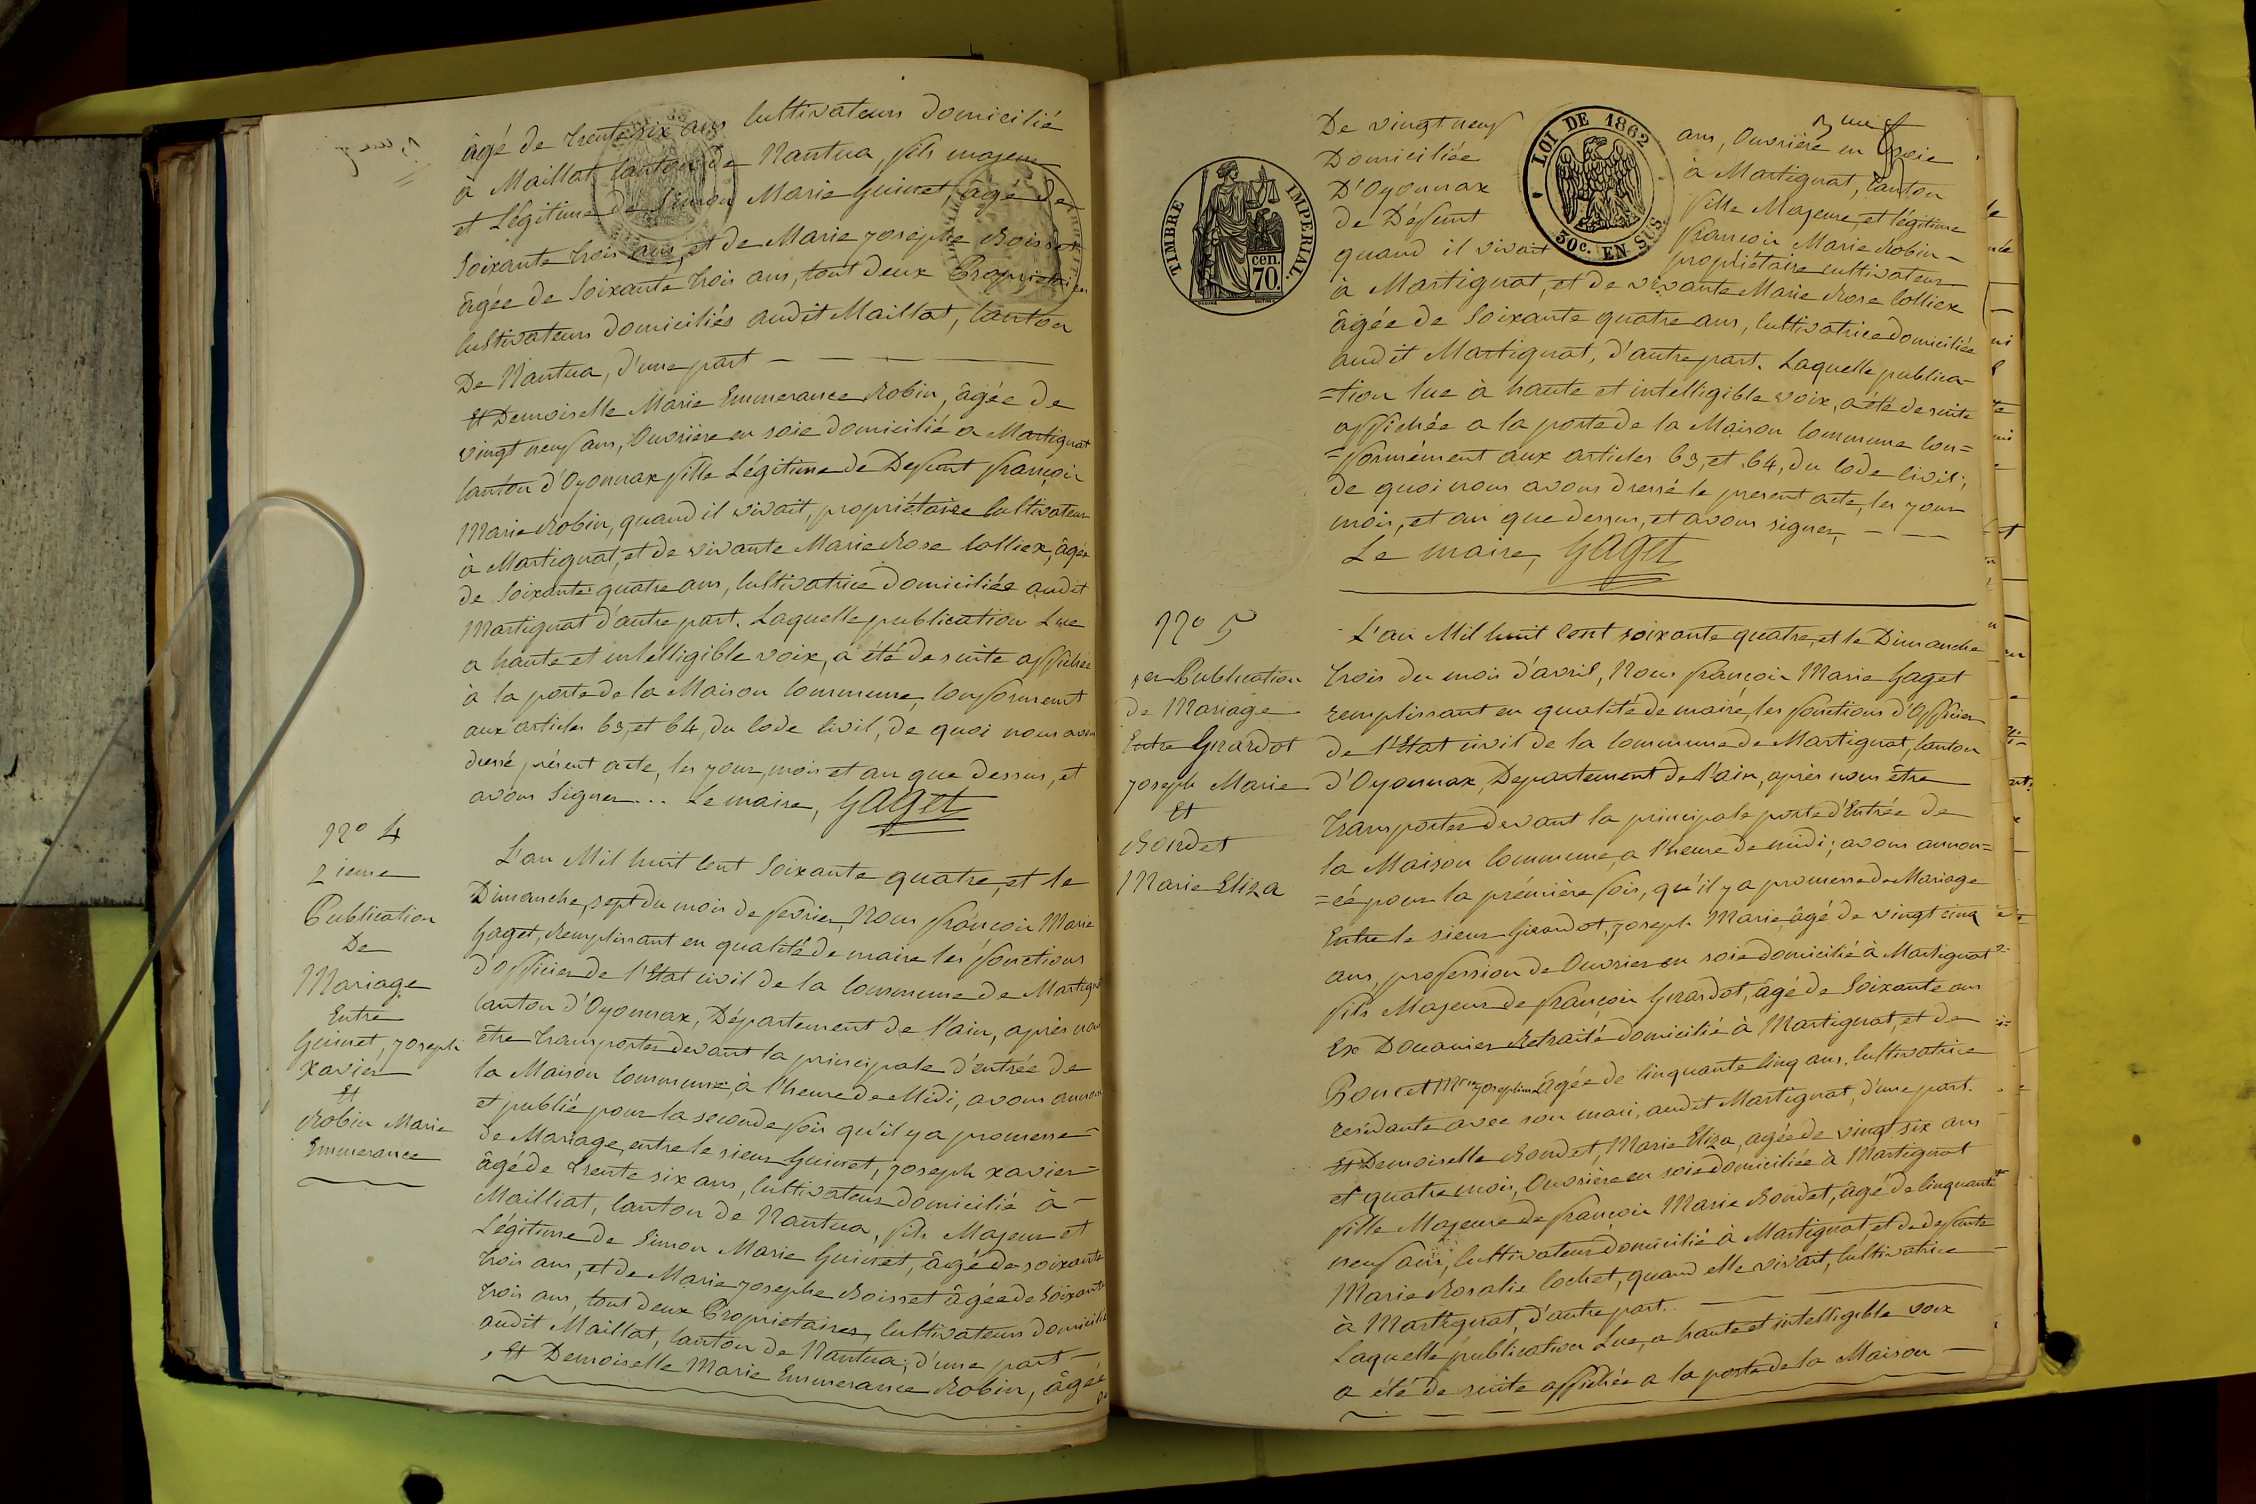 âgé de trente six ans cultivateur domicilié
à Maillat canton de Nantua, fils majeur
et Légitime de Simon Marie Guinet, âgé de
Soixante trois ans, et de Marie josephe Boisset
âgée de Soixante trois ans, tout deux Propriétaires
cultivateurs domiciliés audit Maillat, canton
De Nantua, d'une part
Et Demoiselle Marie Emmerance Robin, âgée de
vingt neuf ans, Ouvrière en soie domicilié a Martignat
canton d'Oyonnax fille Légitime de Defunt françois
Marie Robin, quand il vivait, propriétaire cultivateur
à Martignat, et de vivante Marie Rose Colliex, âgée
de Soixante quatre ans, cultivatrice domiciliée audit
Martignat d'autre part. Laquelle publication Lue
a haute et intelligible voix, a été de suite affichée
à la porte de la Maison Commune, conforment
aux articles 63, et 64, du Code Civil, de quoi nous avons
dressé présent acte, les jour, mois et an que dessus, et
avons Signer... Le maire, GAGet
N° 4
2ieme
Publication
De
Mariage
Entre
Guinet, joseph
xavier
Et
Robin Marie
Emmerance
L'an Mil huit Cent Soixante quatre, et le
Dimanche, sept du mois de fevrier, Nous françois Marie
Gaget, Remplissant en qualité de maire les fonctions
d'officier de l'Etat civil de la Commune de Martignat
Canton d'Oyonnax, Département de l'ain, après nous
être transporter devant la principale d'entrée de
la Maison Commune, à l'heure de Midi, avons annoncé
et publié pour la seconde fois qu'il y a promesse
de Mariage, entre le sieur Guinet, joseph xavier
âgé de trente six ans, cultivateur domicilié à
Mailliat, Canton de Nantua, fils Majeur et
Légitime de Simon Marie Guinet, âgé de soixante
trois ans, et de Marie josephe Boisset âgée de Soixante
trois ans, tout deux Propriétaires, cultivateurs domiciliés
audit Maillat, canton de Nantua, d'une part
, Et Demoiselle Marie Emmerance Robin, âgée
TIMBRE IMPERIAL.
cen.
70.
LOI DE 1862
30c. EN SUS.
De vingt neuf ans, Ouvrière en soie
Domiciliée à Martignat, Canton
D'Oyonnax fille Majeure, et légitime
de Défunt françois Marie Robin
quand il vivait propriétaire cultivateur
à Martignat, et de vivante Marie Rose Colliex
âgée de Soixante quatre ans, cultivatrice domiciliée
audit Martignat, d'autre part. Laquelle publica-
=tion lue à haute et intelligible voix, a été de suite
affichée a la porte de la Maison Commune con=
=formément aux articles 63, et 64, du Code Civil;
de quoi nous avons dressé le présent acte, les jour
mois, et an que dessus, et avons signer,
Le maire, GAGet
N° 5
1er Publication
de Mariage
Entre Girardot
joseph Marie
Et
Bondet
Marie Eliza
L'an Mil huit Cent soixante quatre, et le Dimanche
trois du mois d'avril, Nous françois Marie Gaget
remplissant en qualité de maire, les fonctions d'Officier
de l'Etat civil de la Commune de Martignat, Canton
d'Oyonnax, Departement de l'ain, après nous être
transporter devant la principale porte d'Entrée de
la Maison Commune, a l'heure de midi; avons annon=
=cé pour la première fois, qu'il y a promesse de Mariage
Entre le sieur Girardot, joseph Marie, âgé de vingt cinq
ans, profession de Ouvrier en soie domicilié à Martignat
fils Majeur de françois Girardot, âgé de Soixante ans
Ex Douanier Retraité domicilié à Martignat, et de
Poncet Mrie josephine Âgée de Cinquante Cinq ans, cultivatrice
residante avec son mari, audit Martignat, d'une part.
Et Demoiselle Bondet, Marie Eliza, agée de vingt six ans
et quatre mois, Ouvrière en soie domiciliée à Martignat
fille Majeure de françois Marie Bondet, âgé de Cinquante
neuf ans, cultivateur domicilié à Martignat, et de defunte
Marie Rosalie Cochet, quand elle vivait, cultivatrice
à Martignat, d'autre part.
Laquelle publication Lue, a haute et intelligible voix
a été de suite affichée a la porte de la Maison